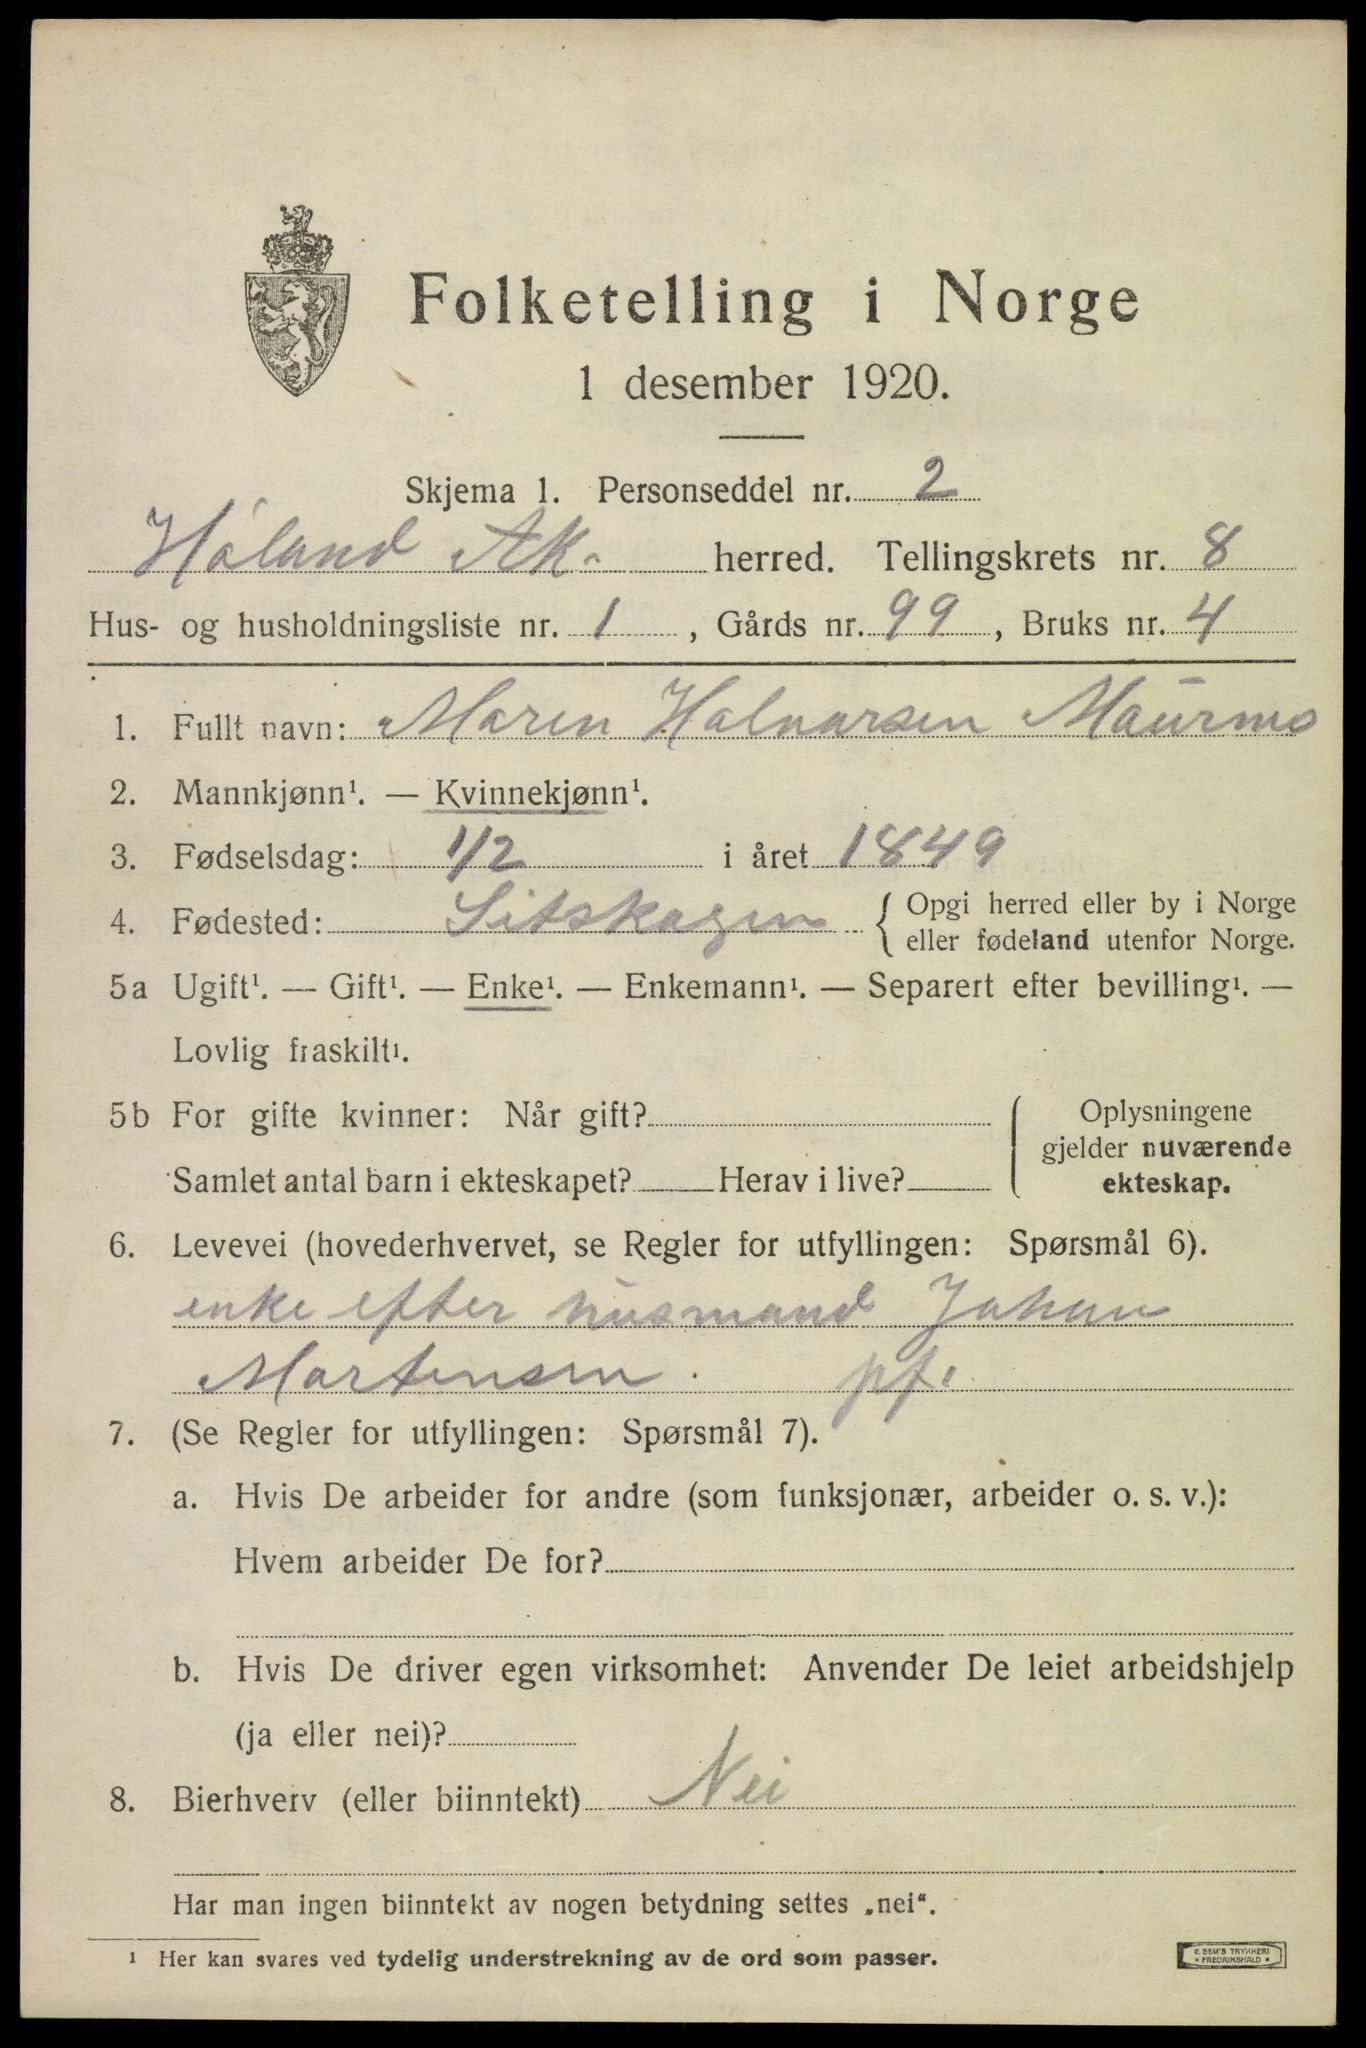 Folketelling i Norge
1 desember 1920.
Skjema 1. Personseddel nr. 2
Høland Ak. herred. Tellingskrets nr. 8
Hus- og husholdningsliste nr. 1, Gårds nr. 99, Bruks nr. 4
1. Fullt navn: Maren Halvarsen Maurmo
2. Mannkjønn¹. — Kvinnekjønn¹.
3. Fødselsdag: 1/2 i året 1849
4. Fødested: Sitskogen { Opgi herred eller by i Norge
eller fødeland utenfor Norge.
5a Ugift¹. — Gift¹. — Enke¹. — Enkemann¹. — Separert efter bevilling¹. —
Lovlig fraskilt¹.
5b For gifte kvinner: Når gift?
Samlet antal barn i ekteskapet? Herav i live?
Oplysningene
gjelder nuværende
ekteskap.
6. Levevei (hovederhvervet, se Regler for utfyllingen: Spørsmål 6).
enke efter husmand Johan
Martensen. pf.
7. (Se Regler for utfyllingen: Spørsmål 7).
a. Hvis De arbeider for andre (som funksjonær, arbeider o. s. v.):
Hvem arbeider De for?
b. Hvis De driver egen virksomhet: Anvender De leiet arbeidshjelp
(ja eller nei)?
8. Bierhverv (eller biinntekt) Nei
Har man ingen biinntekt av nogen betydning settes „nei“.
¹ Her kan svares ved tydelig understrekning av de ord som passer.
E. SEM'S TRYKKERI
• FREDRIKSHALD •